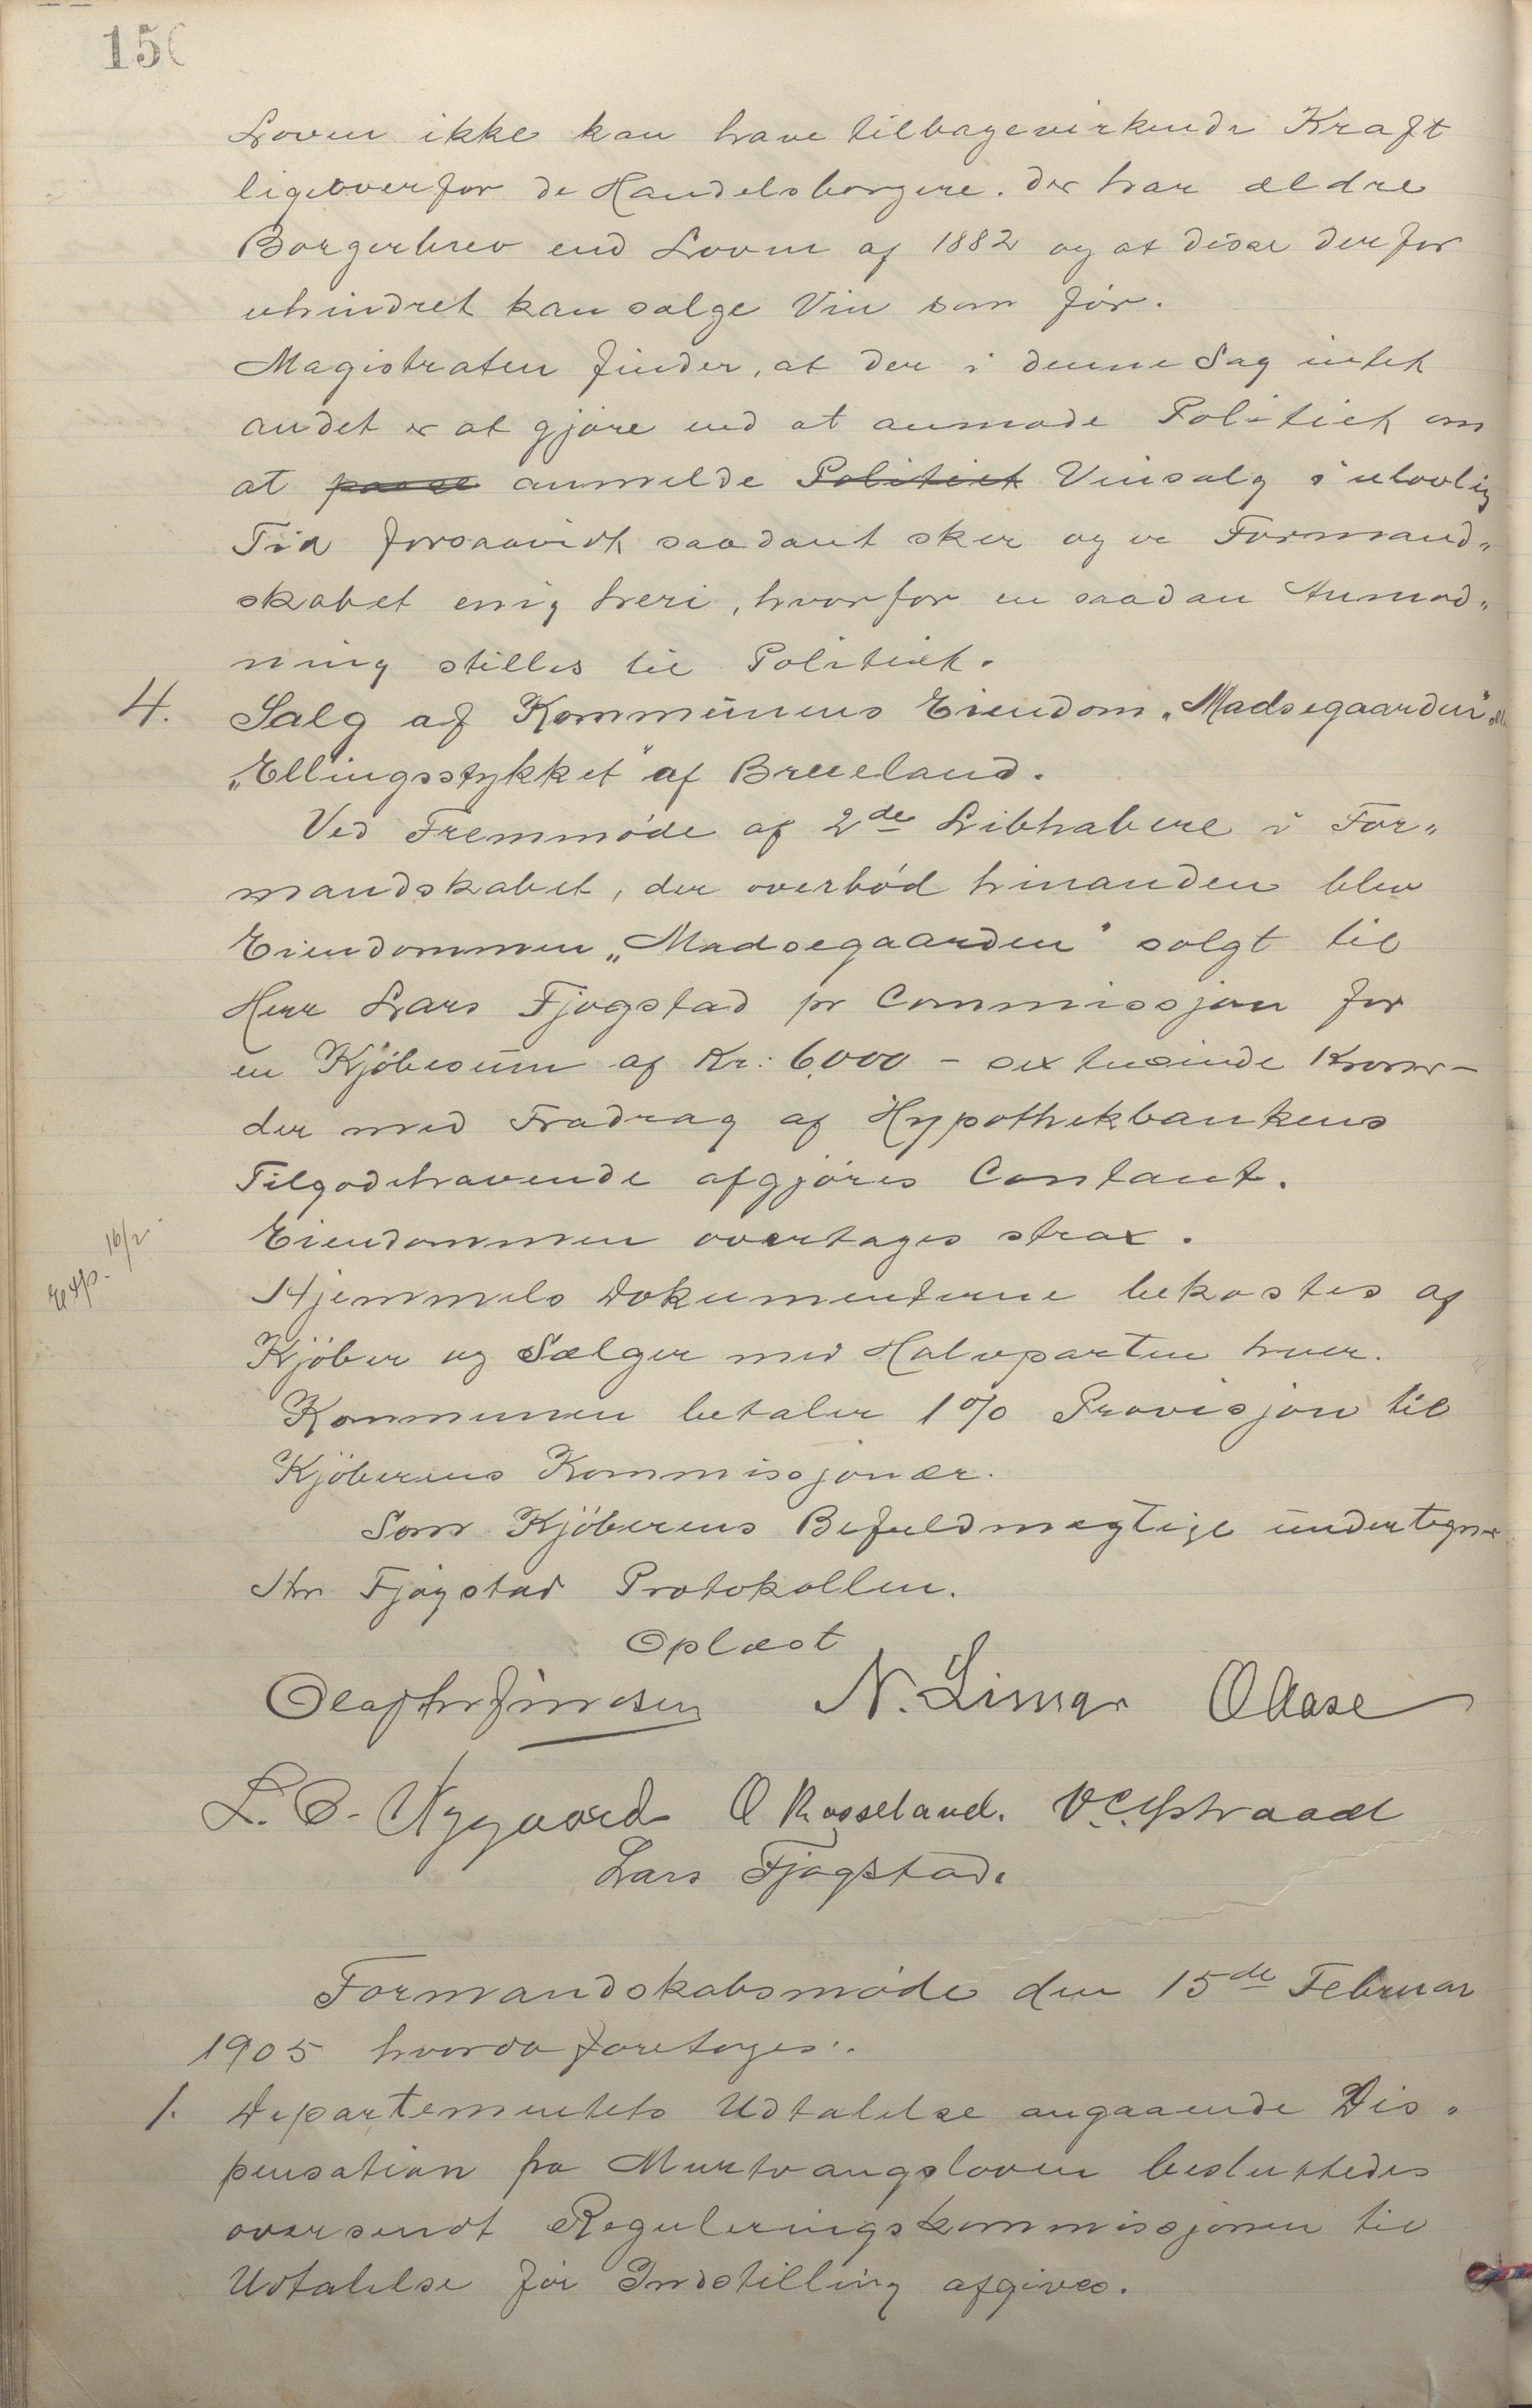 150
Loven ikke kan have tilbagevirkende Kraft
ligeoverfor de Handelsborgere. der har ældre
Borgerbrev end Loven af 1882 og at disse derfor
uhindret kan sælge Vin som før.
Magistraten finder, at der i denne Sag intet
andet er at gjøre end at anmode Politiet om
at paase anmelde Politiet Vinsalg i ulovlig
Tid forsaavidt saadant sker og er Formand„
skabet enig heri, hvorfor en saadan Anmod„
ning stilles til Politiet.
4. Salg af Kommunens Eiendom „Madsegaarden"
„Ellingsstykket" af Brueland.
Ved Fremmøde af 2de Libhabere i For„
mandskabet, der overbød hinanden blev
Eiendommen „Madsegaarden" solgt til
Herr Lars Fjogstad pr Commissjon for
en Kjøbesum af Kr: 6000 - sex tusinde Kroner -
der med Fradrag af Hypothekbankens
Tilgodehavende afgjøres Contant.
Eiendommen overtages strax.
Exp. 16/2
Hjemmels Dokumenterne bekostes af
Kjøber og Sælger med Halvparten hver.
Kommunen betaler 1% Provisjon til
Kjøberens Kommissjonær.
Som Kjøberens Befuldmægtige undertegner
Hr Fjogstad Protokollen.
Oplæst
N. Lima O Aase
L. O. Nygaard O Rosseland.
Lars Fjogstad.
Formandskabsmøde den 15de Februar
1905 hvorda foretoges:
1. Departementets Udtalelse angaaende Dis„
pensation fra Murtvangsloven besluttedes
oversendt Reguleringskommissjonen til
Udtalelse før Indstilling afgives.